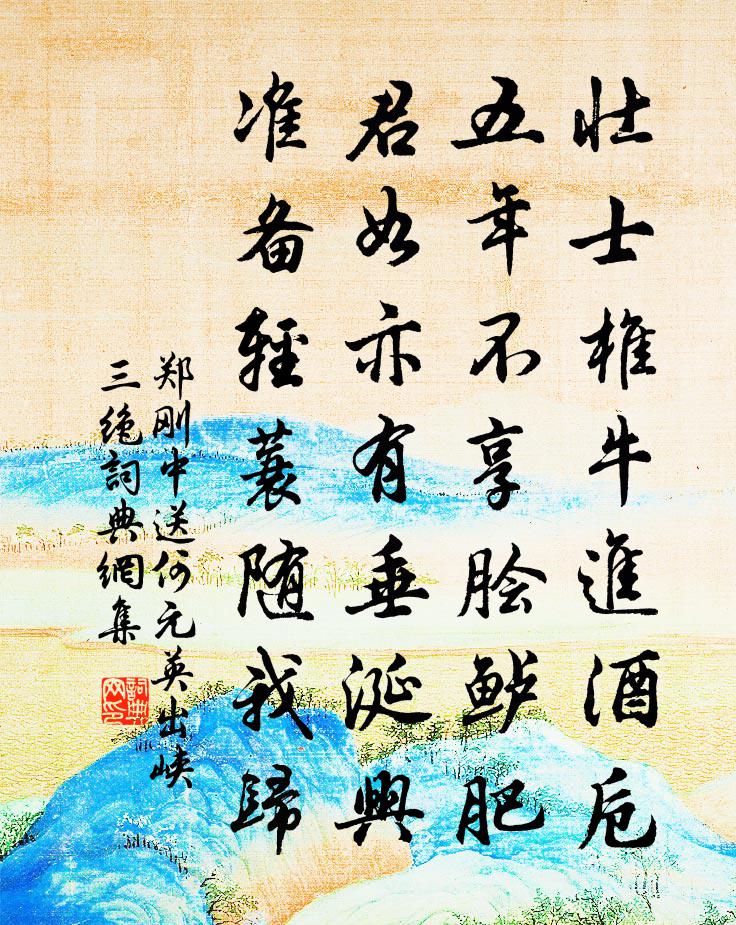 壮士椎牛進酒卮
五年不享脍鲈肥
君如亦有垂涎興
准备輕蓑随我歸
郑刚中送何元英出峡
三绝詞典網集
詞典网印